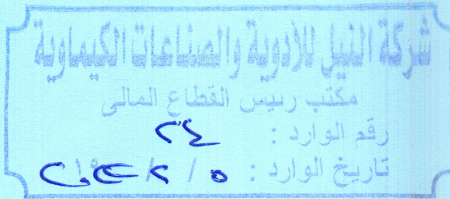 شركة النيل للأدوية والصناعات الكيماوية
مكتب رئيس القطاع المالى
رقم الوارد : ٢٤
تاريخ الوارد : ٥ / ٢ /